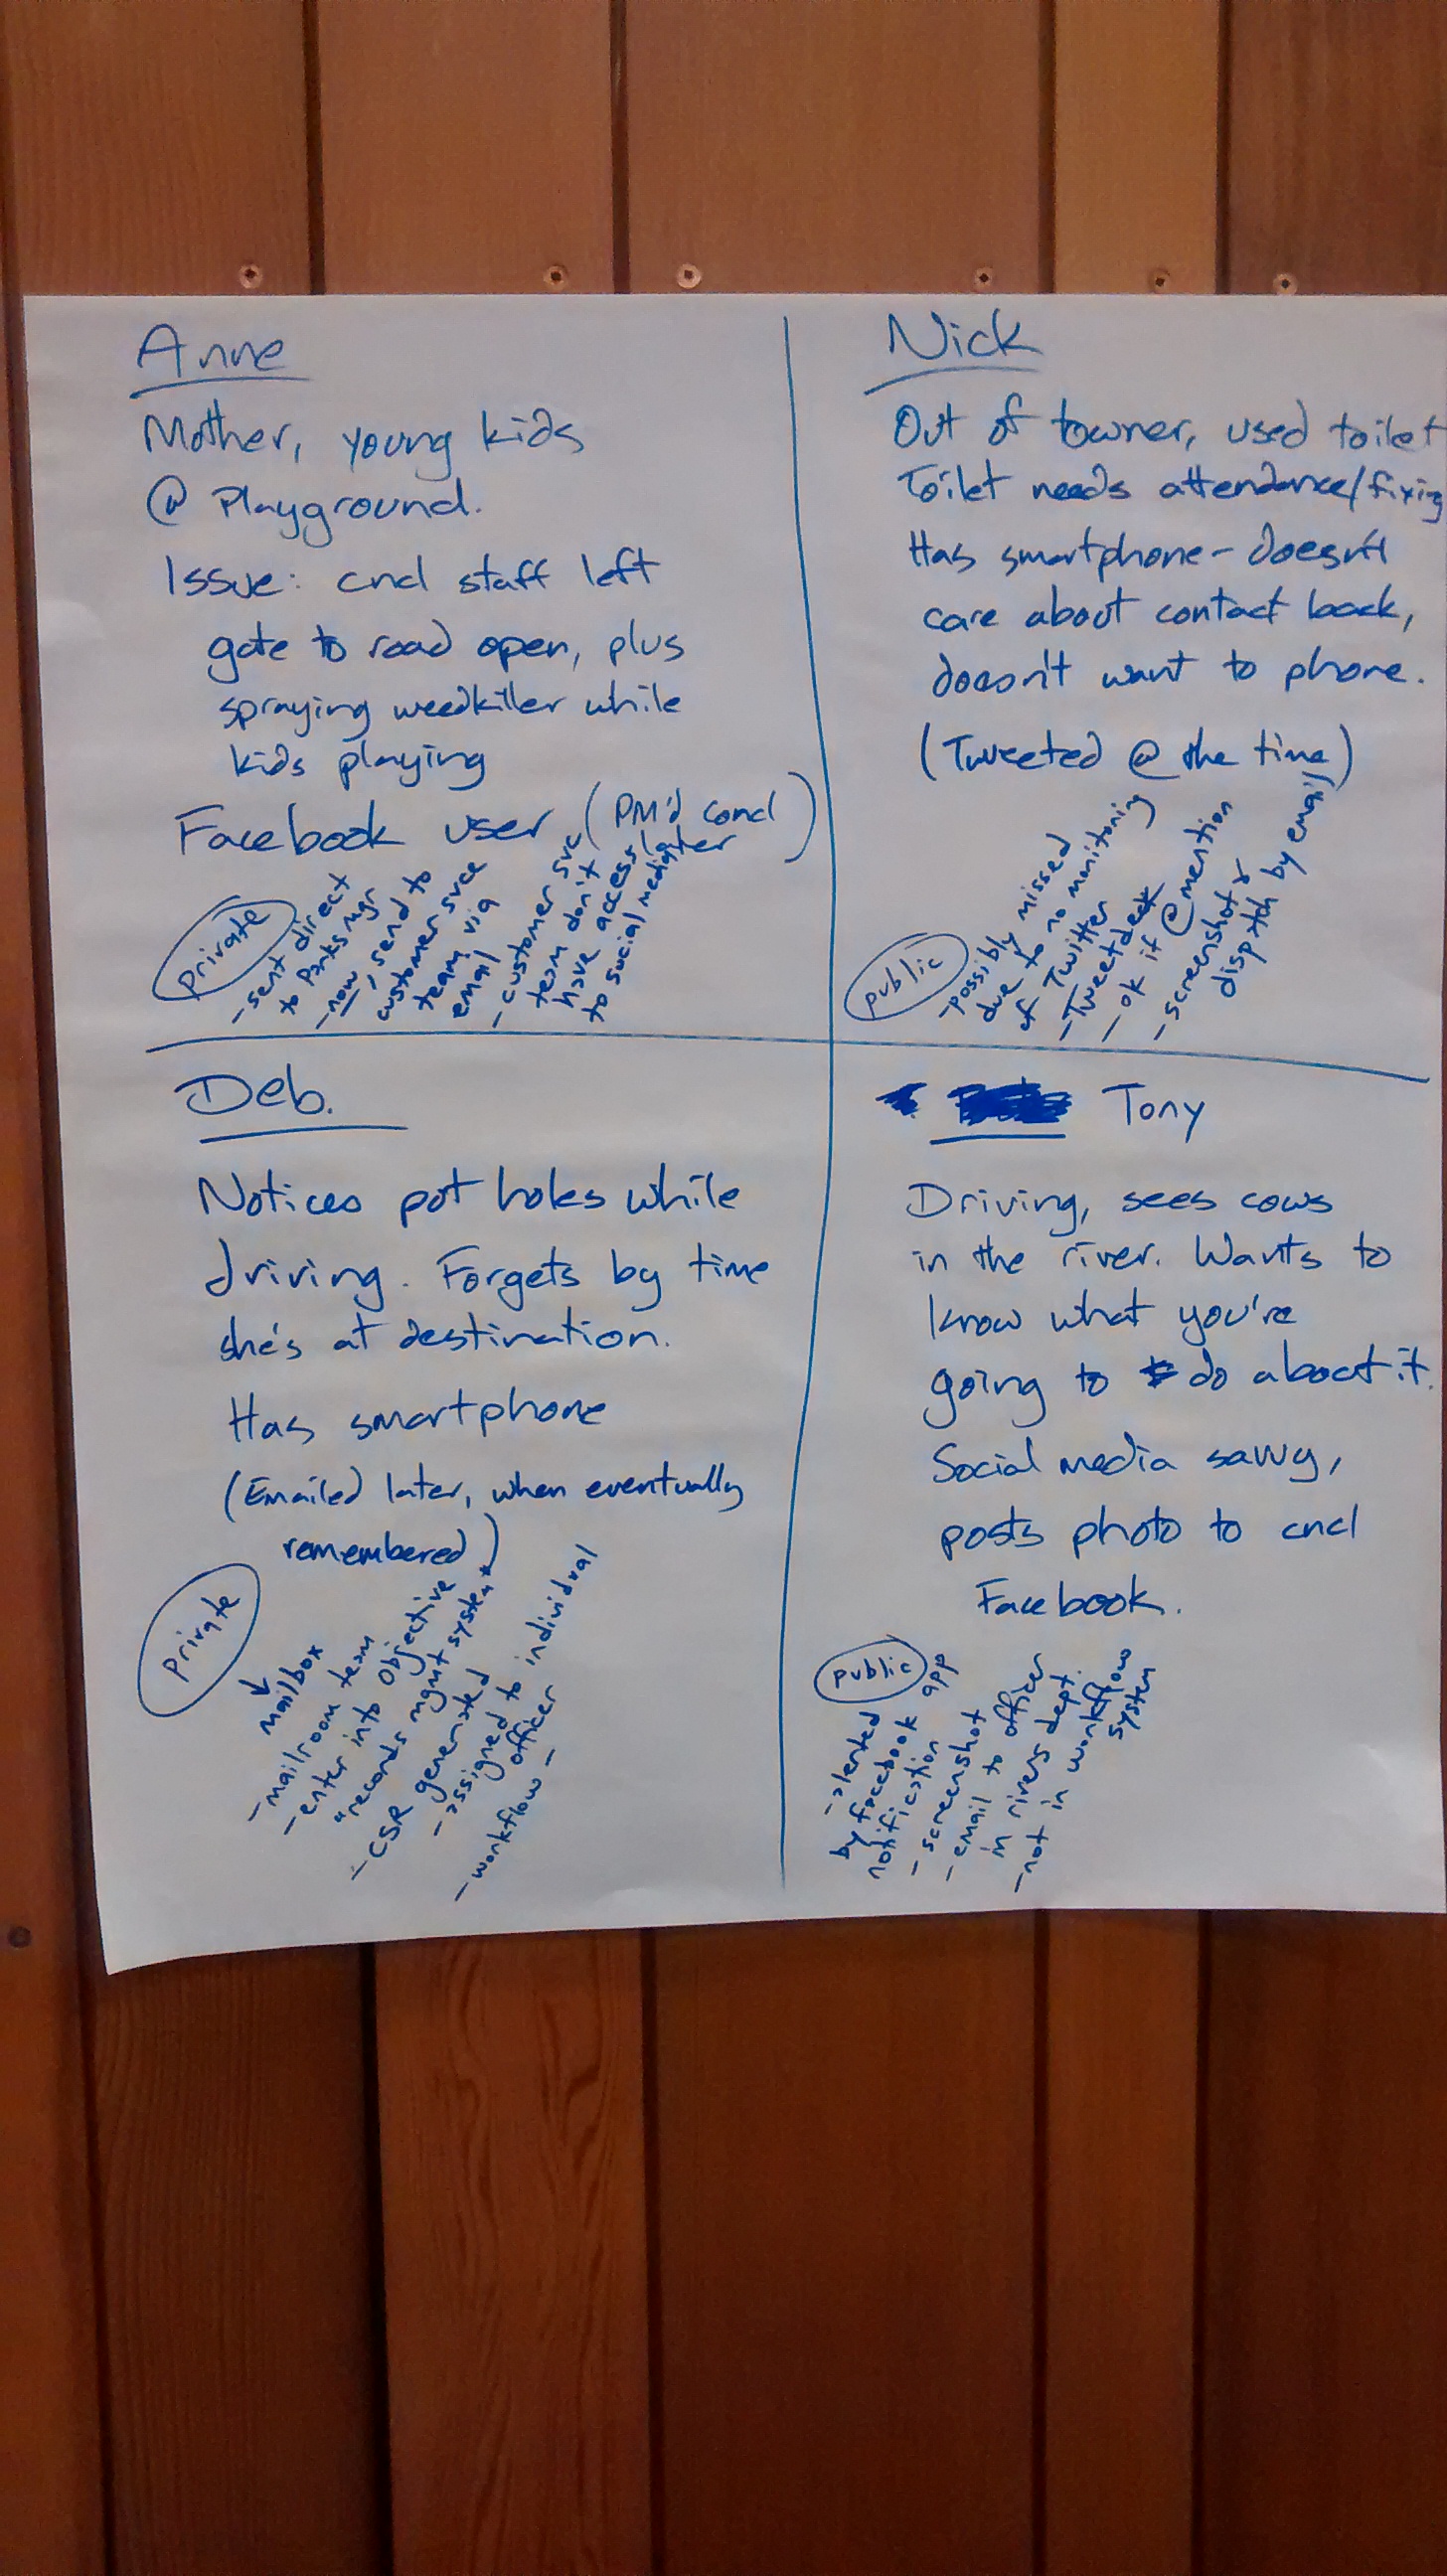 Anne
Mother, young kids
@ Playground.
Issue: cncl staff left
gate to road open, plus
spraying weedkiller while
kids playing
Facebook user (PM'd cncl
later)
private
- sent direct
to Parks mgr
- now, send to
customer svce
team via
email
- customer svc
team don't
have access
to social media
Nick
Out of towner, used toilet
Toilet needs attendance/fixing
Has smartphone - doesn't
care about contact back,
doesn't want to phone.
(Tweeted @ the time)
public
- possibly missed
due to no monitoring
of Twitter
- Tweetdeck
- ok if @mention
- screenshot &
dispatch by email
Deb.
Notices pot holes while
driving. Forgets by time
she's at destination.
Has smartphone
(Emailed later, when eventually
remembered)
private
↓
mailbox
- mailroom team
- enter into Objective
"records mgmt system"
- CSR generated
- assigned to individual
officer
- workflow -
Tony
Driving, sees cows
in the river. Wants to
know what you're
going to do about it.
Social media savvy,
posts photo to cncl
Facebook.
public
- alerted
by facebook app
notification
- screenshot
- email to officer
in rivers dept.
- not in workflow
system